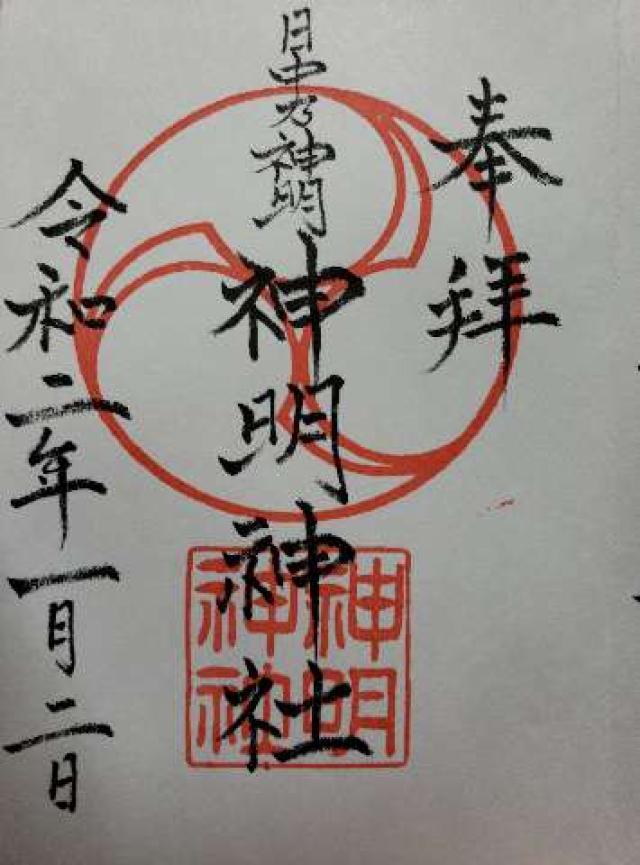 奉拝
日中乃神明
神明神社
令和二年一月二日
神明
神社